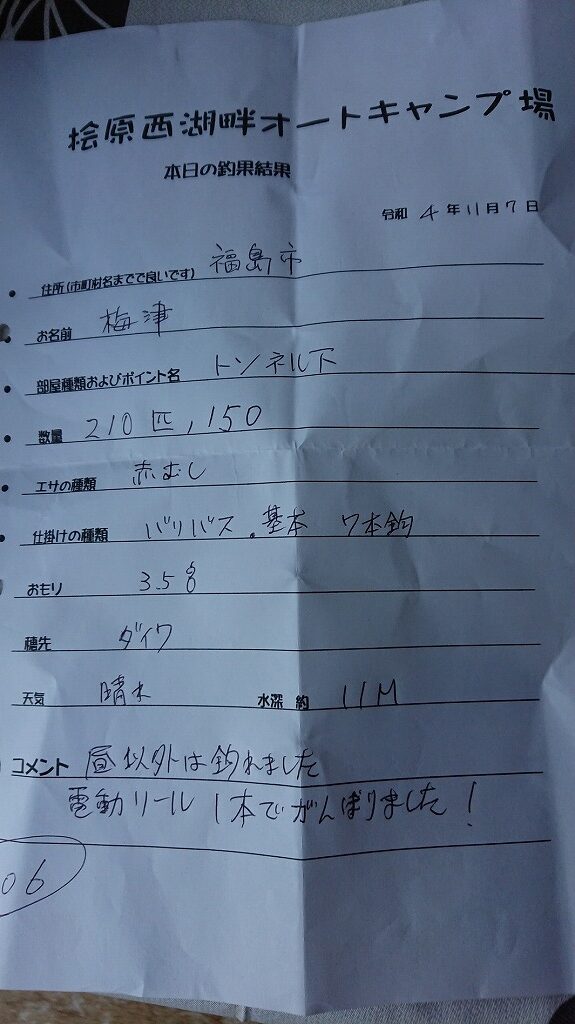 桧原西湖畔オートキャンプ場
本日の釣果結果
令和 4年11月7日
住所(市町村名までで良いです) 福島市
お名前 梅津
部屋種類およびポイント名 トンネル下
数量 210匹,150
エサの種類 赤むし
仕掛けの種類 バリバス.基本 7本鈎
おもり 3.5g
穂先 ダイワ
天気 晴れ 水深 約 11M
コメント 昼以外は釣れました
電動リール1本でがんばりました!
06